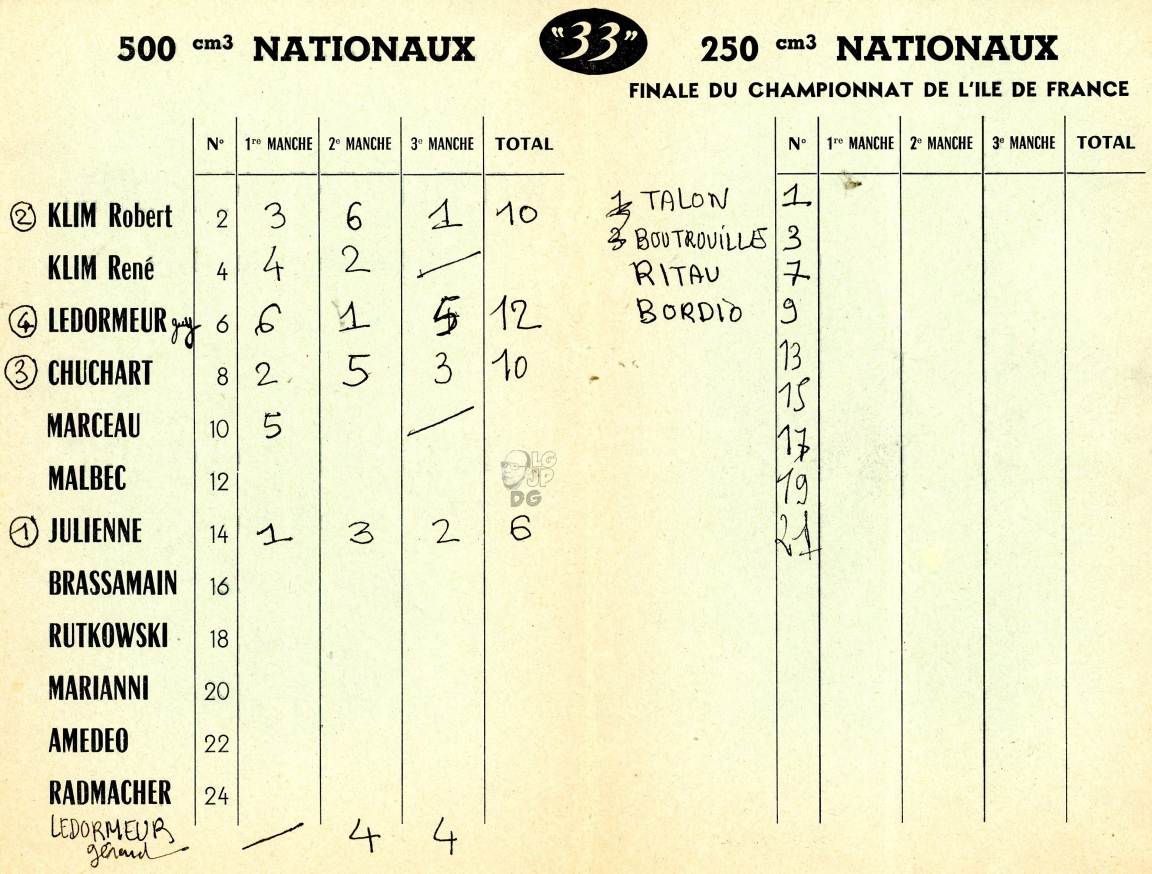 500 cm3 NATIONAUX
N° 1re MANCHE 2e MANCHE 3e MANCHE TOTAL
② KLIM Robert 2 3 6 1 10
KLIM René 4 4 2 /
④ LEDORMEUR guy 6 6 1 5 12
③ CHUCHART 8 2 5 3 10
MARCEAU 10 5 /
MALBEC 12
① JULIENNE 14 1 3 2 6
BRASSAMAIN 16
RUTKOWSKI 18
MARIANNI 20
AMEDEO 22
RADMACHER 24
LEDORMEUR / 4 4
gérard
"33"
250 cm3 NATIONAUX
FINALE DU CHAMPIONNAT DE L'ILE DE FRANCE
N° 1re MANCHE 2e MANCHE 3e MANCHE TOTAL
TALON 1
BOUTROUILLE 3
RITAU 7
BORDIO 9
13
15
17
19
21
LG
JP
DG